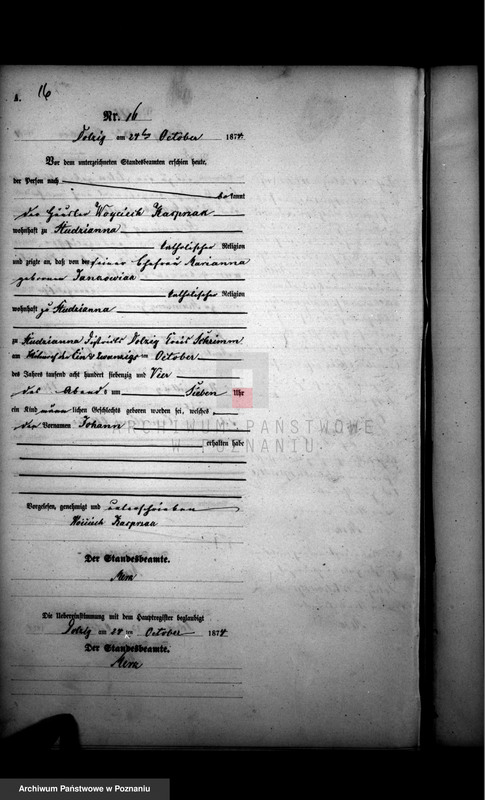 A.
16
Nr. 16
Dolzig am 24ten October 1874
Vor dem unterzeichneten Standesbeamten erschien heute,
der Person nach
bekannt
der Häusler Woyciech Kasprzak
wohnhaft zu Studzianna
katholischer Religion
und zeigte an, daß von der seiner Ehefrau Marianna
geborenen Jankowiak
katholischer Religion
wohnhaft zu Studzianna
zu Studzianna Distrikts Dolzig Kreis Schrimm
am Ein & zwanzigsten October
des Jahres tausend acht hundert siebenzig und Vier
des Abends um Sieben Uhr
ein Kind männlichen Geschlechts geboren worden sei, welches
den Vornamen Johann
erhalten habe
ARCHIWUM PAŃSTWOWE
W POZNANIU
Vorgelesen, genehmigt und unterschrieben
Woiciech Kasprzak
Der Standesbeamte.
Die Uebereinstimmung mit dem Hauptregister beglaubigt
Dolzig am 24 ten October 1874
Der Standesbeamte.
Archiwum Państwowe w Poznaniu